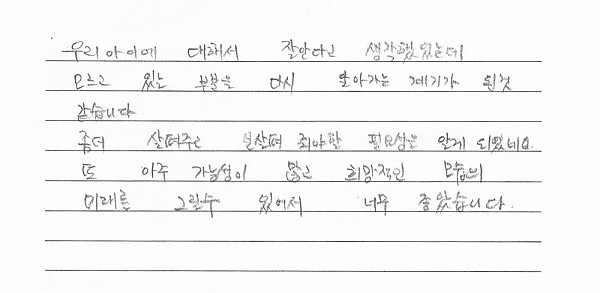 우리 아이에 대해서 잘안다고 생각했었는데
모르고 있는 부분을 다시 알아가는 계기가 된것
같습니다
좀더 살펴주고 보살펴 줘야할 필요성을 알게 되었네요.
또 아주 가능성이 많고 희망적인 모습의
미래를 그릴수 있어서 너무 좋았습니다.